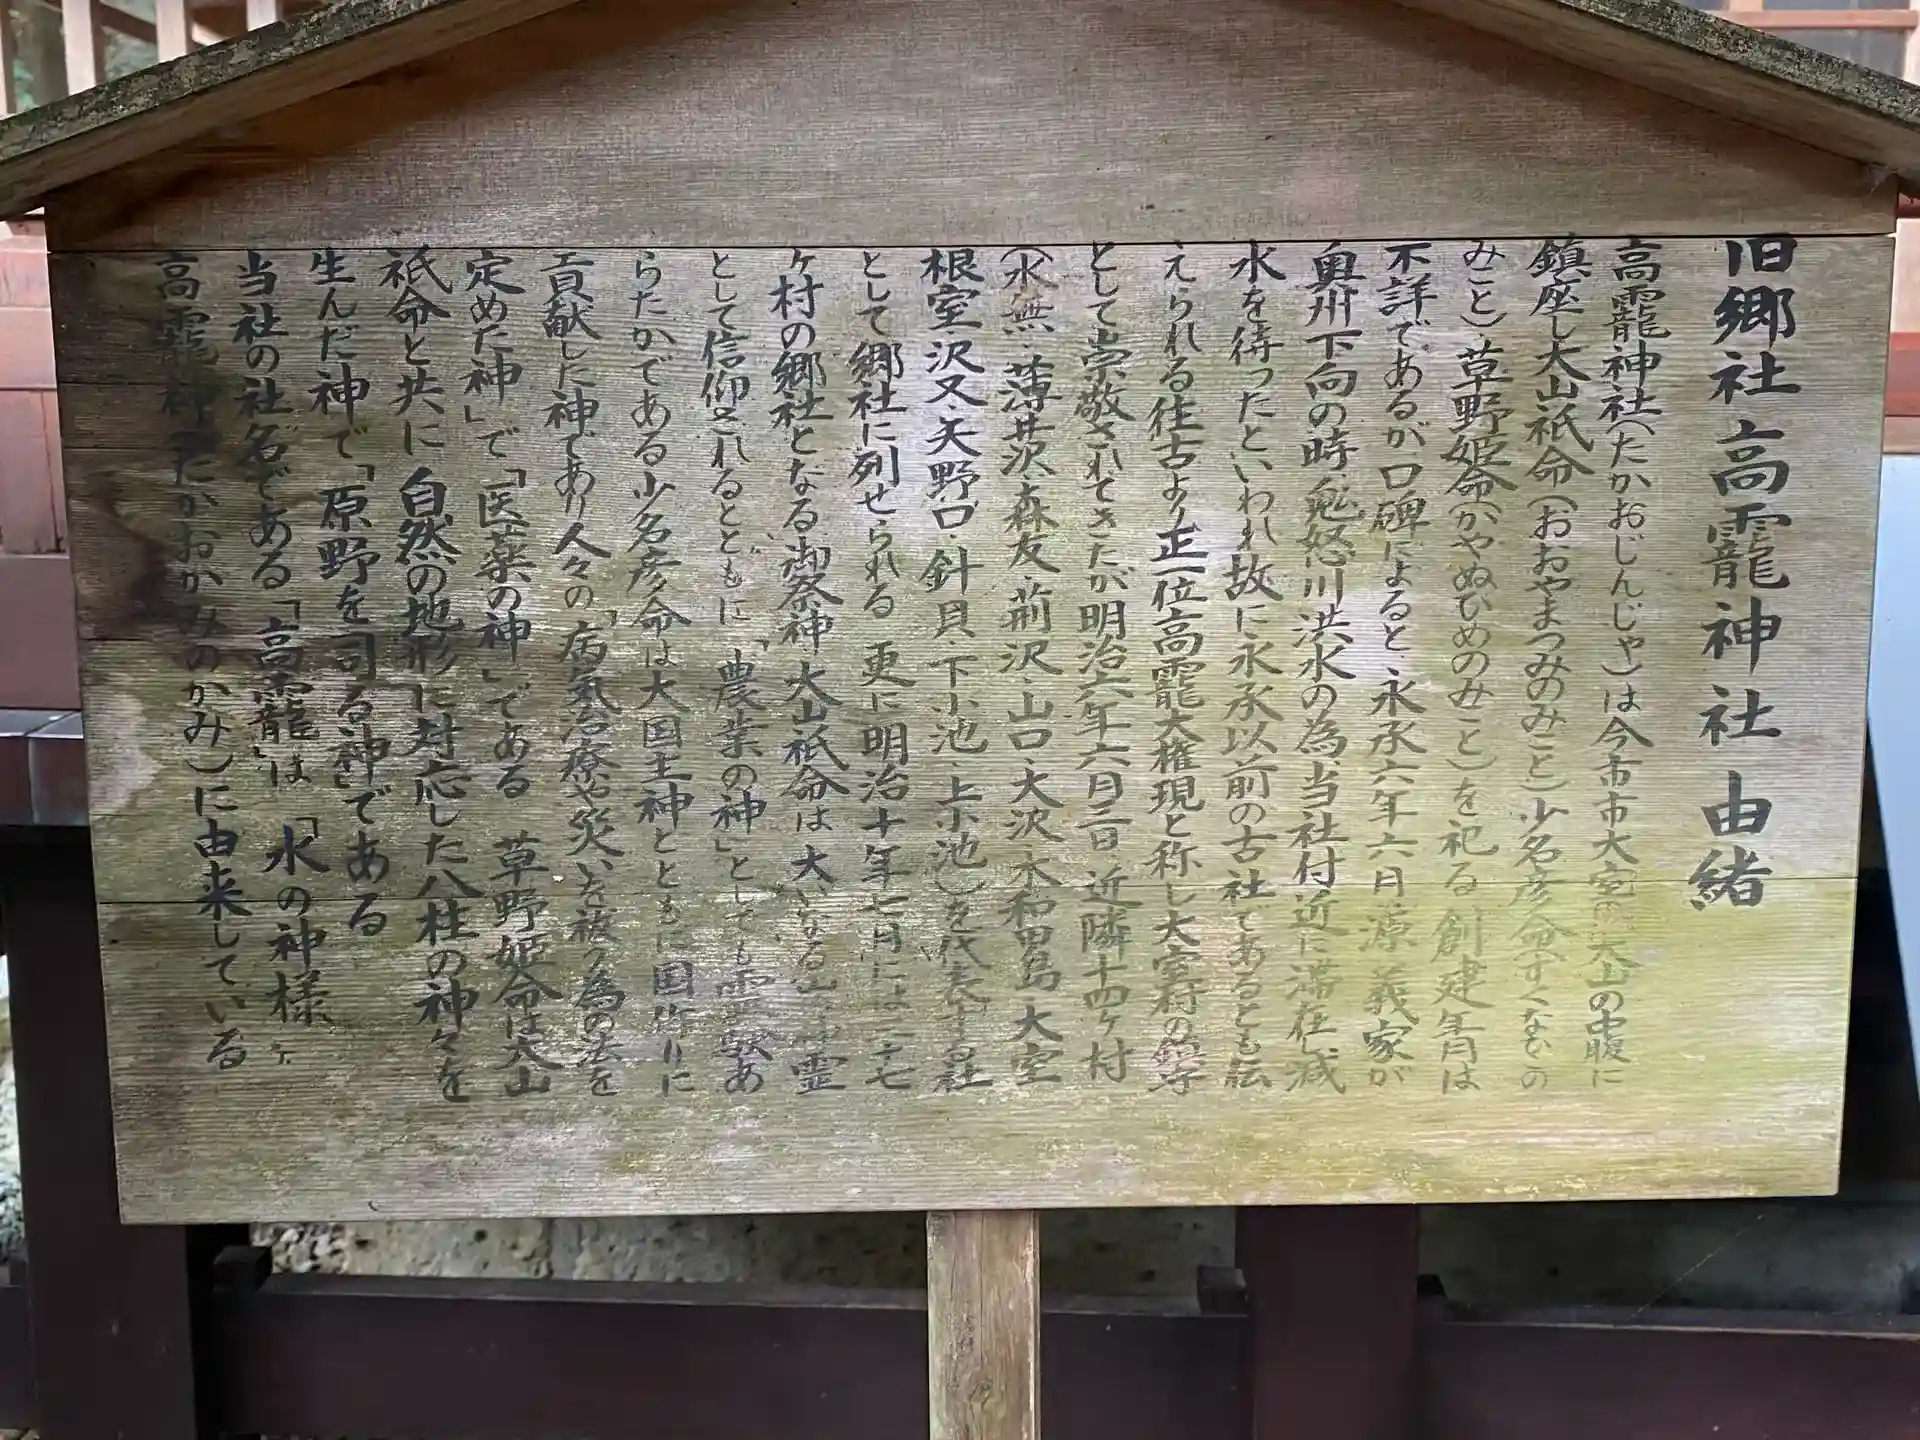 旧郷社高靇神社由緒
高靇神社(たかおじんじゃ)は今市市大室の大山の中腹に
鎮座し大山祇命(おおやまつみのみこと)少名彦命(すくなひの
みこと)草野姫命(かやぬひめのみこと)を祀る 創建年月は
不詳であるが口碑によると、永承六年六月源 義家が
奥州下向の時、鬼怒川洪水の為、当社付近に滞在し減
水を待ったといわれ故に永承以前の古社であるとも伝
えられる往古より正一位高靇大権現と称し大室村の鎮守
として崇敬されてきたが明治六年六月三日、近隣十四ヶ村
(水無・薄井沢・森友・荊沢・山口・大沢・木和田島・大室
根室・沢又・矢野口・針貝・下小池・上小池)を代表する社
として郷社に列せられる 更に明治十年七月には二十七
ヶ村の郷社となる 御祭神 大山祇命は 大いなる山の神霊
として信仰されるとともに「農業の神」としても霊験あ
らたかである 少名彦命は大国主神とともに国作りに
貢献した神であり人々の「病気治療や災いを祓う為の法を
定めた神」で「医薬の神」である 草野姫命は大山
祇命と共に自然の地形に対応した八柱の神々を
生んだ神で「原野を司る神」である
当社の社名である「高靇」は「水の神様」
高靇神(たかおかみのかみ)に由来している